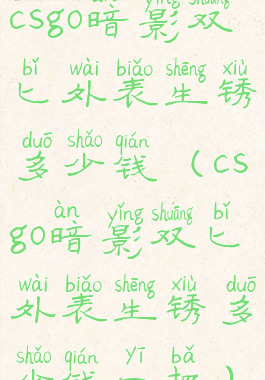 csgo暗影双
bǐ wài biǎo shēng xiù
匕外表生锈
duō shǎo qián
多少钱（cs
àn yǐng shuāng bǐ
go暗影双匕
wài biǎo shēng xiù duō
外表生锈多
shǎo qián yī bǎ
少钱一把）